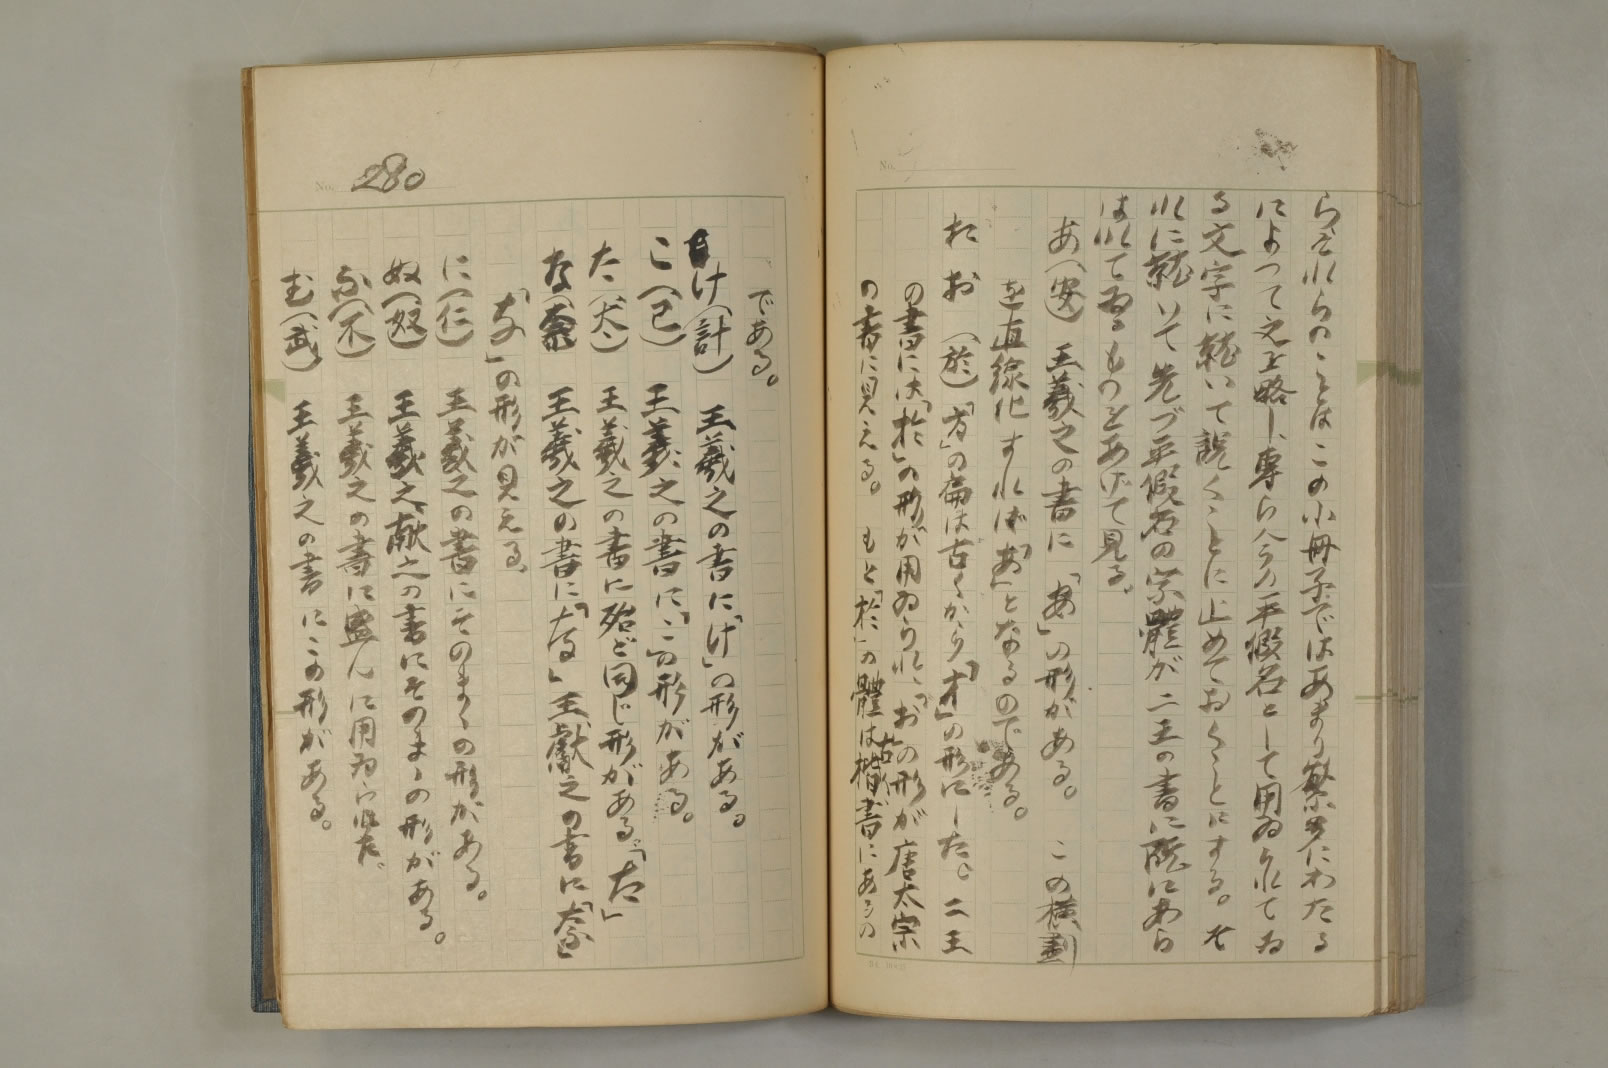 らそれらのことはこの小冊子ではあまり繁雑にわたる
によつて之を略し、専ら今日平假名として用ゐられてゐ
る文字に就いて説くことに止めておくことにする。そ
れに就いて先づ平假名の字體が二王の書に既にあら
はれてゐるものをあげて見る。
あ(安) 王羲之の書に「あ」の形がある。 この横畫
を直線化すれば「あ」となるのである。
お (於)「方」の扁は古くから「才」の形にした。二王
の書には「於」の形が用ゐられ、「お」の形が唐太宗
の書に見える。 もと「於」の體は古い楷書にあるの
No. 280
である。
け(計) 王羲之の書に「け」の形がある。
こ(己) 王羲之の書に「こ」の形がある。
た(太) 王羲之の書に殆ど同じ形がある。「た」
な(奈) 王羲之の書に「な」王獻之の書に「な」
「な」の形が見える。
に(仁) 王羲之の書にそのまゝの形がある。
ぬ(奴) 王羲之、献之の書にそのまゝの形がある。
ふ(不) 王羲之の書に盛んに用ゐられた。
む(武) 王羲之の書にこの形がある。